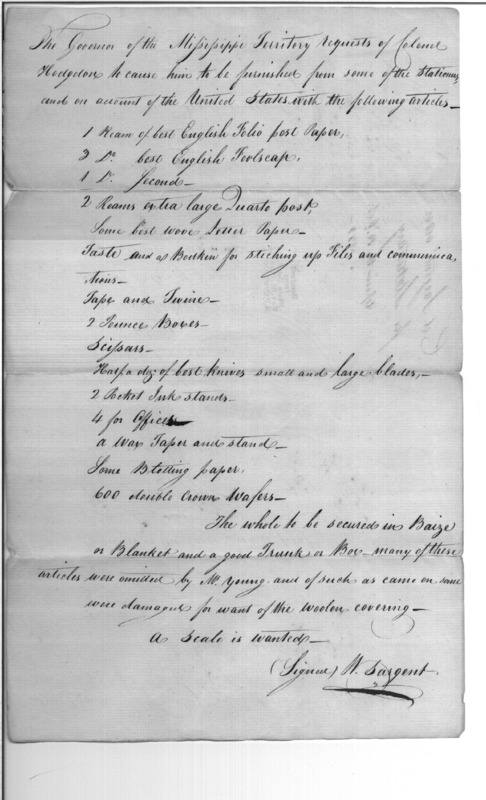 The Governor of the Mississippi Territory requests of Colonel
Hodgdon to cause him to be furnished from some of the Stationers
and on account of the United States with the following articles—
1 Ream of best English Folio post Paper,
3 Do best English Foolscap,
1 Do Second—
2 Reams extra large Quarto post,
Some best wove Letter Paper—
Taste and a Bodkin for stiching up Files and communica
tions—
Tape and Twine—
2 Pounce Boxes—
Scissars—
Half a dz of best Knives small and large blades,—
2 Pocket Ink stands—
4 for Office
a Wax Taper and stand—
Some Blotting paper,
600 double Crown Wafers—
The whole to be secured in Baize
or Blanket and a good Trunk or Box—many of these
articles were omitted by Mr Young and of such as came on some
were damaged for want of the woolen covering—
A Scale is wanted—
(Signed) W. Sargent